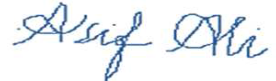 Asif Ali